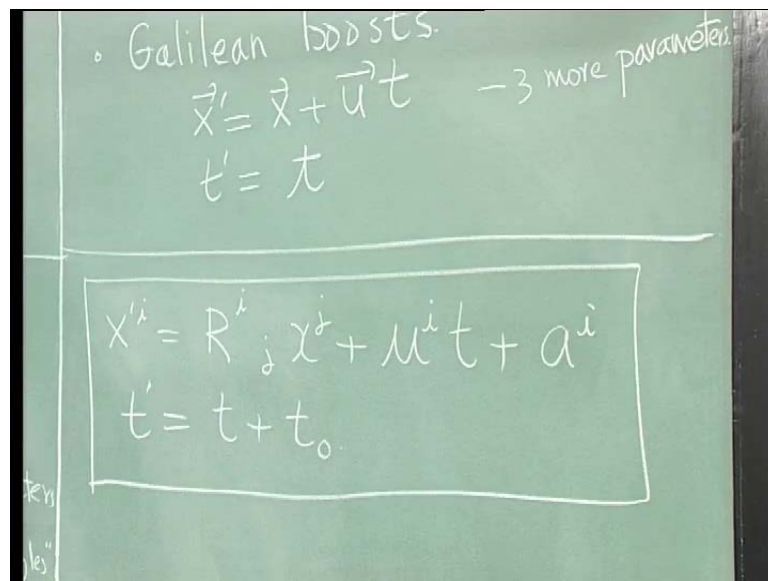 • Galilean boosts.
x⃗' = x⃗ + u⃗ t - 3 more parameters.
t' = t
x'ⁱ = Rⁱⱼ xʲ + uⁱ t + aⁱ
t' = t + t₀.
ters
les"